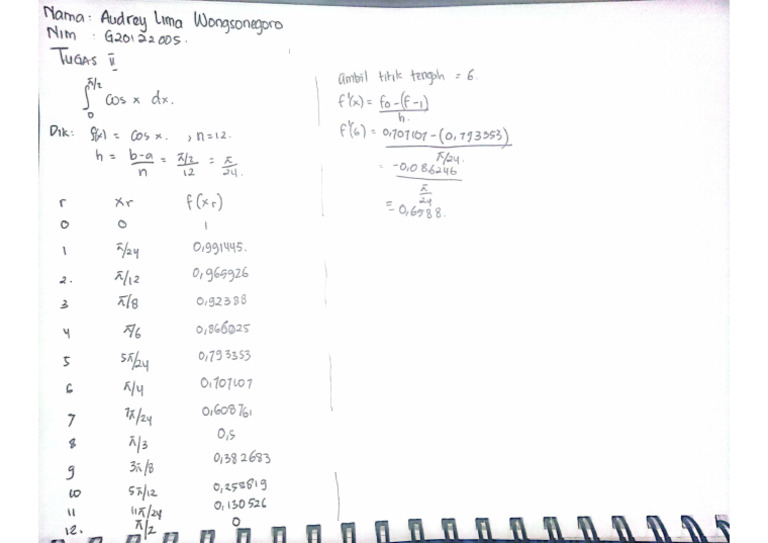 Nama : Audrey Lima Wongsonegoro
Nim : G20122005.
TUGAS II
π/2
∫ cos x dx.
0
Dik: f(x) = cos x. , n=12.
h = b-a/n = π/2/12 = π/24.
r xr f(xr)
0 0 1
1 π/24 0,991445.
2. π/12 0,965926
3 π/8 0,92388
4 π/6 0,866025
5 5π/24 0,793353
6 π/4 0,707107
7 7π/24 0,608761
8 π/3 0,5
9 3π/8 0,382683
10 5π/12 0,258819
11 11π/24 0,130526
12. π/2 0
ambil titik tengah = 6.
f'(x) = f0-(f-1)/h.
f'(6) = 0,707107-(0,793353)/π/24.
= -0,086246/π/24
= -0,6588.